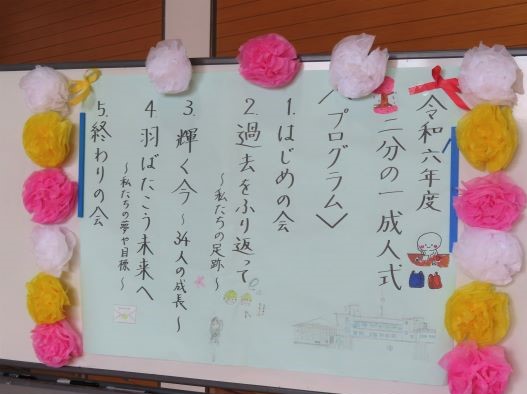 令和六年度
二分の一成人式
〈プログラム〉
1.はじめの会
2.過去をふり返って
～私たちの足跡～
3.輝く今～34人の成長～
4.羽ばたこう未来へ
～私たちの夢や目標～
5.終わりの会